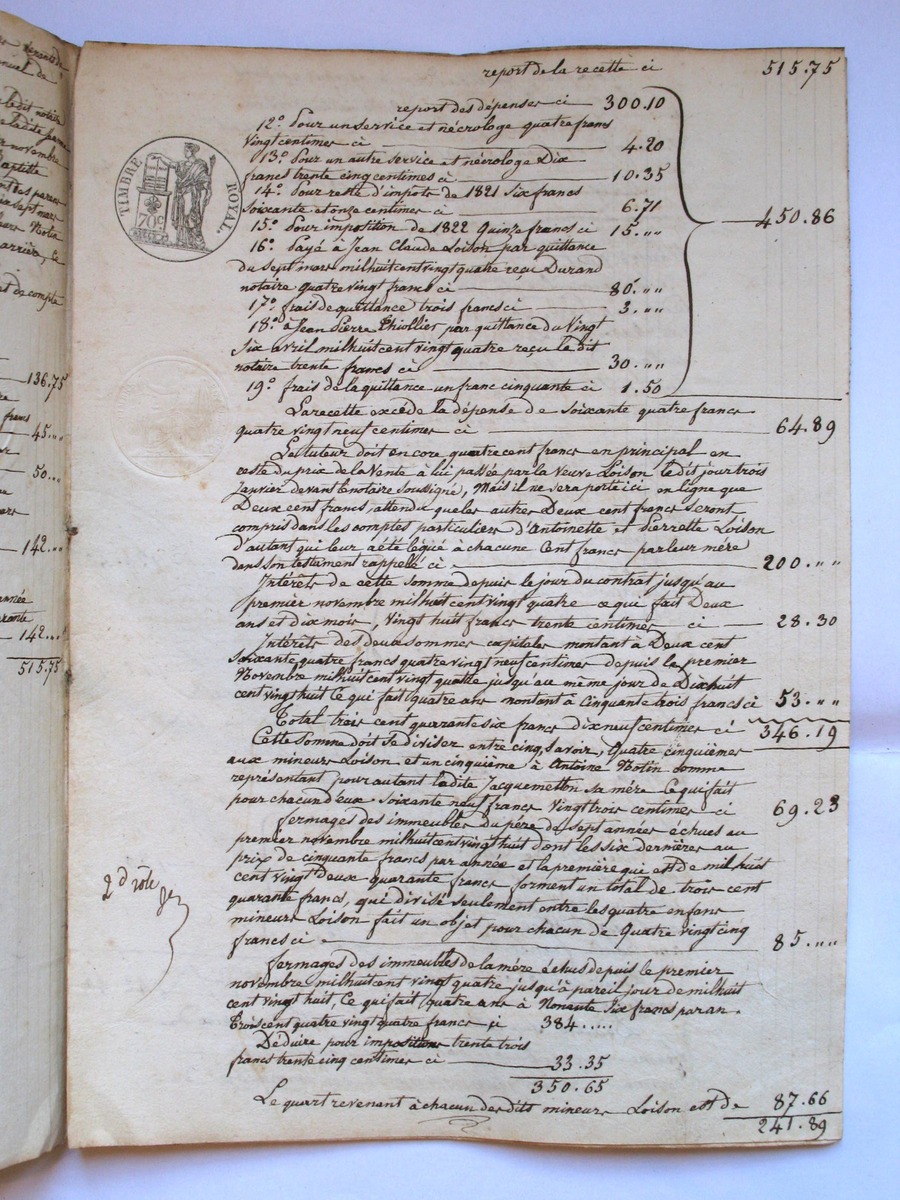 report de la recette ci 515.75
report des dépenses ci 300.10
12.° Pour un service et nécrologe quatre francs
Vingt centimes ci 4.20
13.° Pour un autre service et nécrologe Dix
francs trente cinq centimes ci 10.35
14.° Pour reste d'impots de 1821 Six francs
Soixante et onze centimes ci 6.71
15.° Pour imposition de 1822 Quinze francs ci 15.,,,,
450.86
16.° Payé à Jean Claude Loison par quittance
du Sept mars mil huit cent vingt quatre reçu Durand
notaire quatre vingt francs ci 80.,,,,
17.° frais de quittance trois francs ci 3.,,,,
18.° à Jean Pierre Thiollier par quittance du Vingt
Six avril mil huit cent vingt quatre reçu le dit
notaire trente francs ci 30.,,,,
19.° frais de la quittance un franc cinquante ci 1.50
La recette excède la dépense de Soixante quatre francs
quatre vingt neuf centimes ci 64.89
Le tuteur doit encore quatre cent francs en principal en
reste du prix de la Vente à lui passée par la veuve Loison le dit jour trois
Janvier devant le notaire soussigné, Mais il ne sera porté ici en ligne que
Deux cent francs, attendu que les autres Deux cent francs seront
compris dans les comptes particuliers d'Antoinette et Pierrette Loison
d'autant qui leur a été légué à chacune Cent francs par leur mére
dans son testament rappellé ci 200.,,,,
Intérêts de cette somme depuis le jour du contrat jusqu'au
premier novembre mil huit cent vingt quatre ce qui fait Deux
ans et dix mois, Vingt huit francs trente centimes ci 28.30
Intérêts des deux sommes capitales montant à Deux cent
Soixante quatre francs quatre vingt neuf centimes depuis le premier
Novembre mil huit cent vingt quatre jusqu'au même jour de Dix huit
cent vingt huit Ce qui fait quatre ans montant à Cinquante trois francs ci 53.,,,,
Total trois cent quarante six francs dix neuf centimes ci 346.19
Cette Somme doit se diviser entre cinq, savoir, Quatre cinquièmes
aux mineurs Loison et un cinquième à Antoine Notin comme
représentant pour autant ladite Jacquemetton sa mère Ce qui fait
pour chacun d'eux Soixante neuf francs Vingt trois centimes ci 69.23
fermages des immeubles du père de Sept années échues au
premier novembre mil huit cent vingt huit dont les six dernières au
prix de cinquante francs par année et la première qui est de mil huit
cent vingt deux quarante francs forment un total de trois cent
quarante francs, qui divisé seulement entre les quatre enfans
mineurs Loison fait un objet pour chacun de Quatre vingt cinq
francs ci 85.,,,,
fermages des immeubles de la mère échus depuis le premier
novembre mil huit cent vingt quatre jusqu'à pareil jour de mil huit
cent vingt huit, Ce qui fait quatre ans à Nonante Six francs par an.
Trois cent quatre vingt quatre francs ci 384.....
Déduire pour impositions trente trois
francs trente cinq centimes ci 33.35
350.65
Le quart revenant à chacun des dits mineurs Loison est de 87.66
241.89
TIMBRE ROYAL.
70c
2d rôle
136.75
francs
45.,,,
50.,,,
142.,,,
142.,,,
515.75